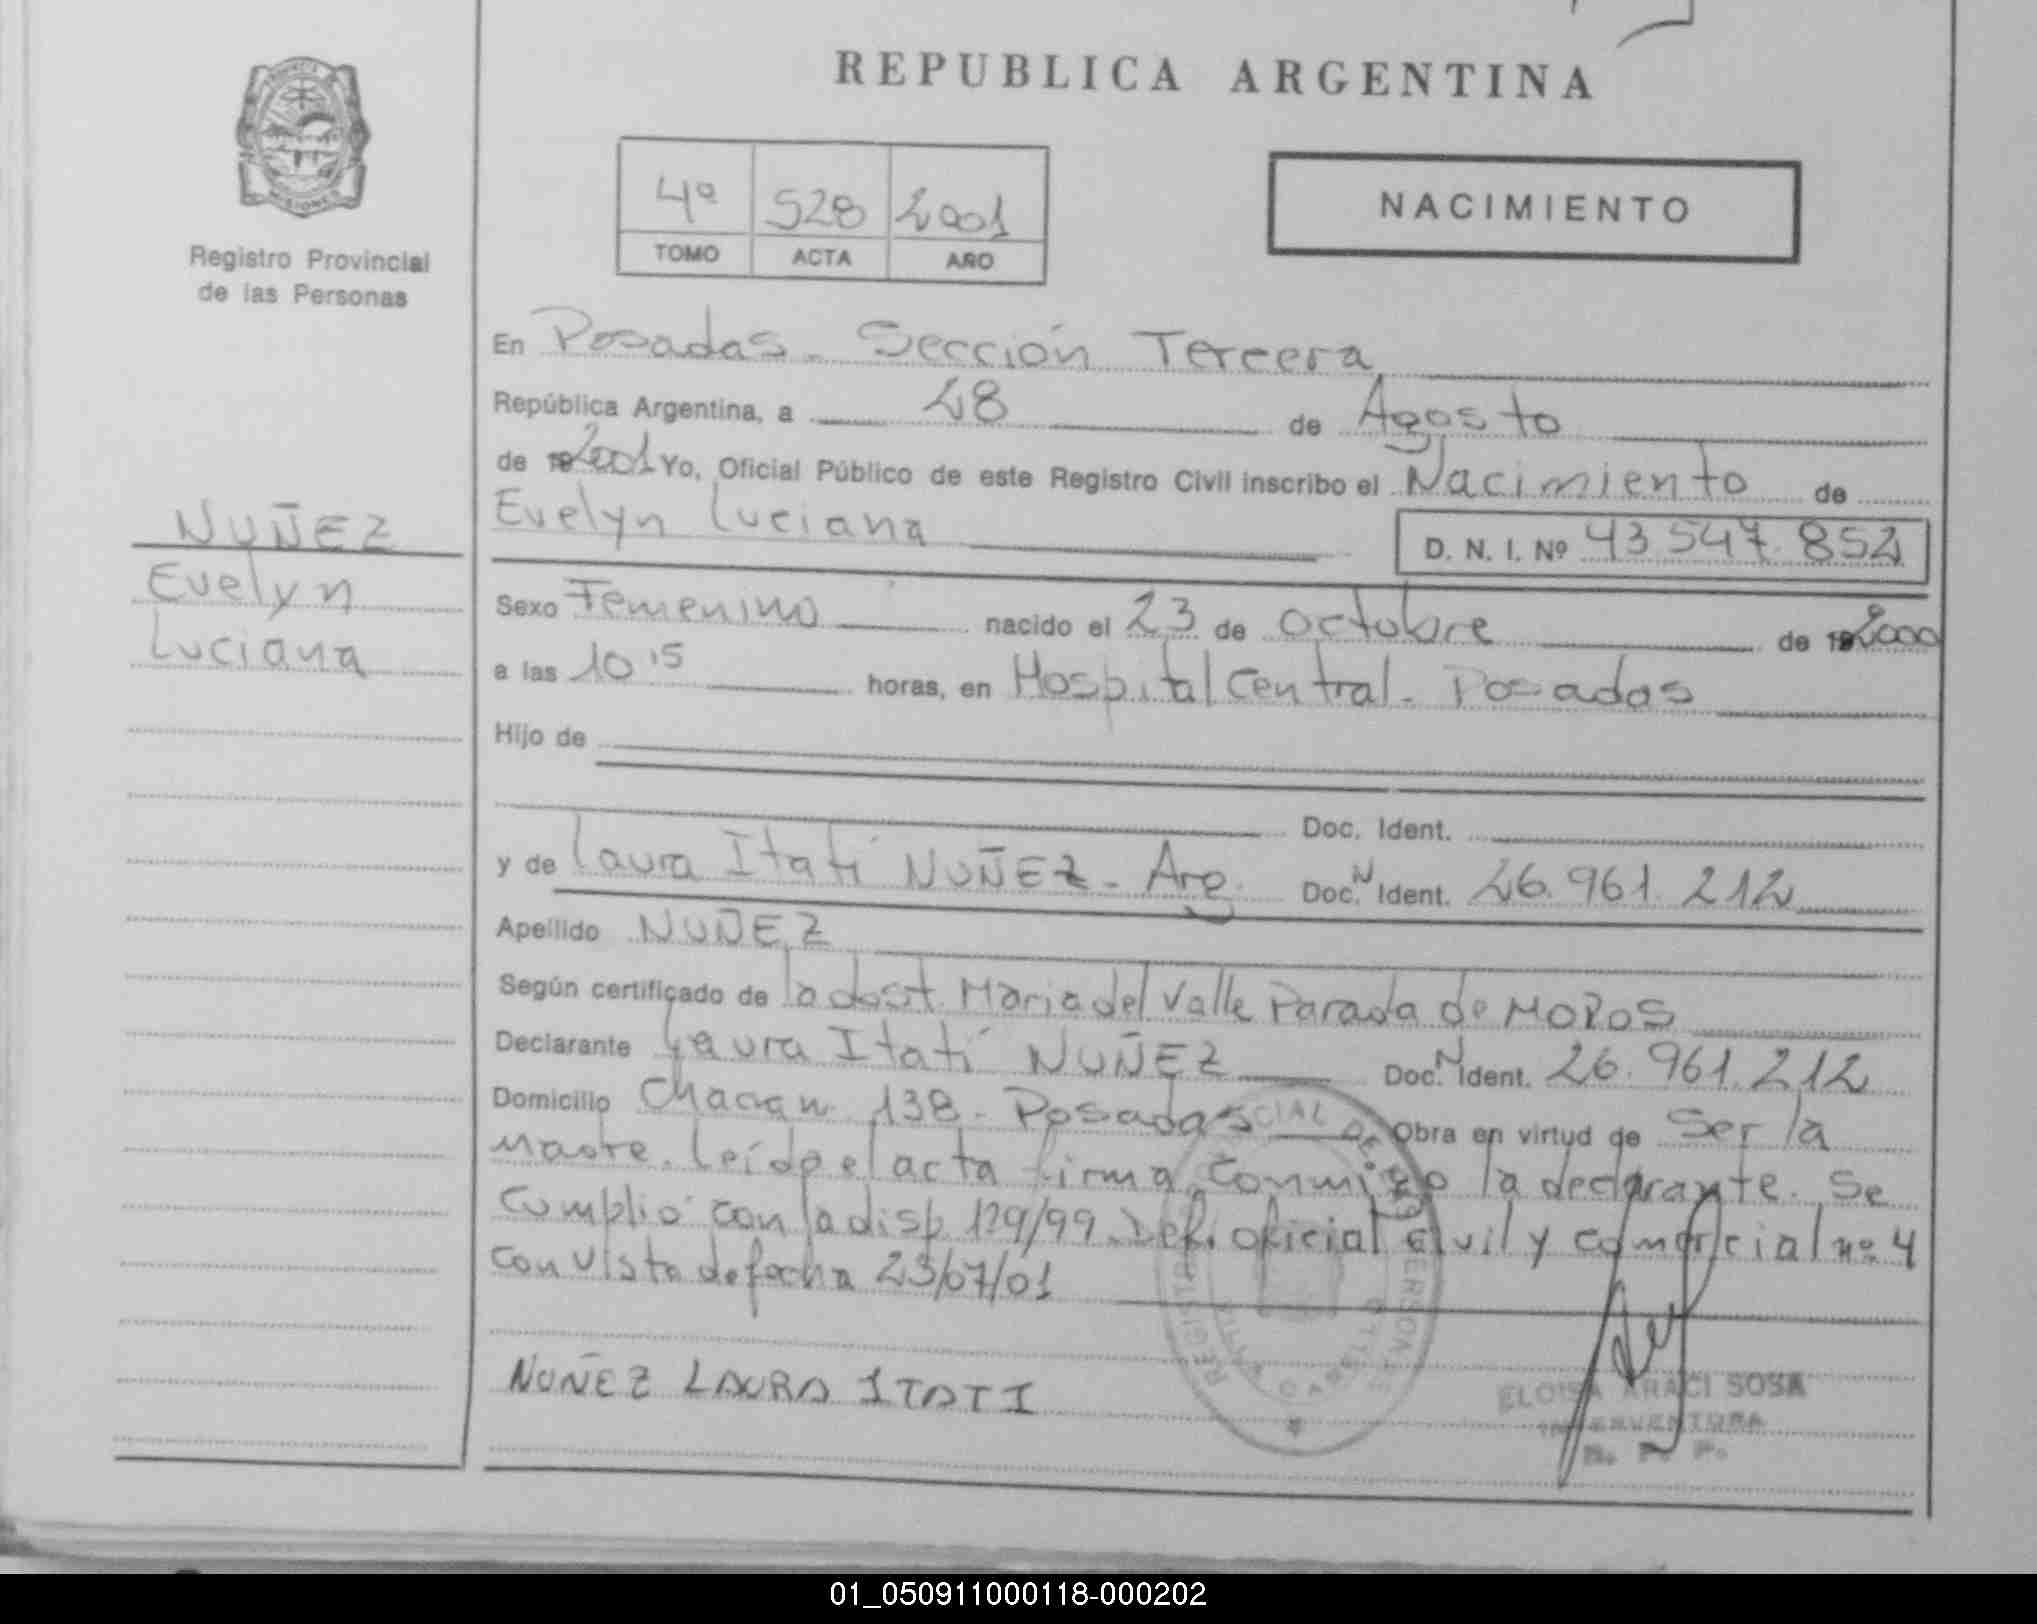 REPUBLICA ARGENTINA
PROVINCIA
MISIONES
Registro Provincial
de las Personas
4º 528 2001
TOMO ACTA AÑO
NACIMIENTO
NUÑEZ
Evelyn
Luciana
En Posadas - Sección Tercera
República Argentina, a 28 de Agosto
de 19 2001 Yo, Oficial Público de este Registro Civil inscribo el Nacimiento de
Evelyn Luciana D. N. I. Nº 43.547.852
Sexo Femenino nacido el 23 de octubre de 19 2000
a las 10 15 horas, en Hospital Central - Posadas
Hijo de
Doc. Ident.
y de Laura Itatí NUÑEZ - Arg. Doc. N Ident. 26.961.212
Apellido NUÑEZ
Según certificado de la dost. Maria del Valle Parada de MOROS
Declarante Laura Itatí NUÑEZ Doc. N Ident. 26.961.212
Domicilio 138 - Posadas Obra en virtud de Ser la
Madre. Leída el acta firma conmigo la declarante. Se
cumplió con la disp. 129/99 Def. oficial civil y comercial nº 4
con vista de fecha 23/07/01
NUÑEZ LAURA ITATI
ELOISA ARACI SOSA
INTERVENTORA
R. P. P.
01_050911000118-000202